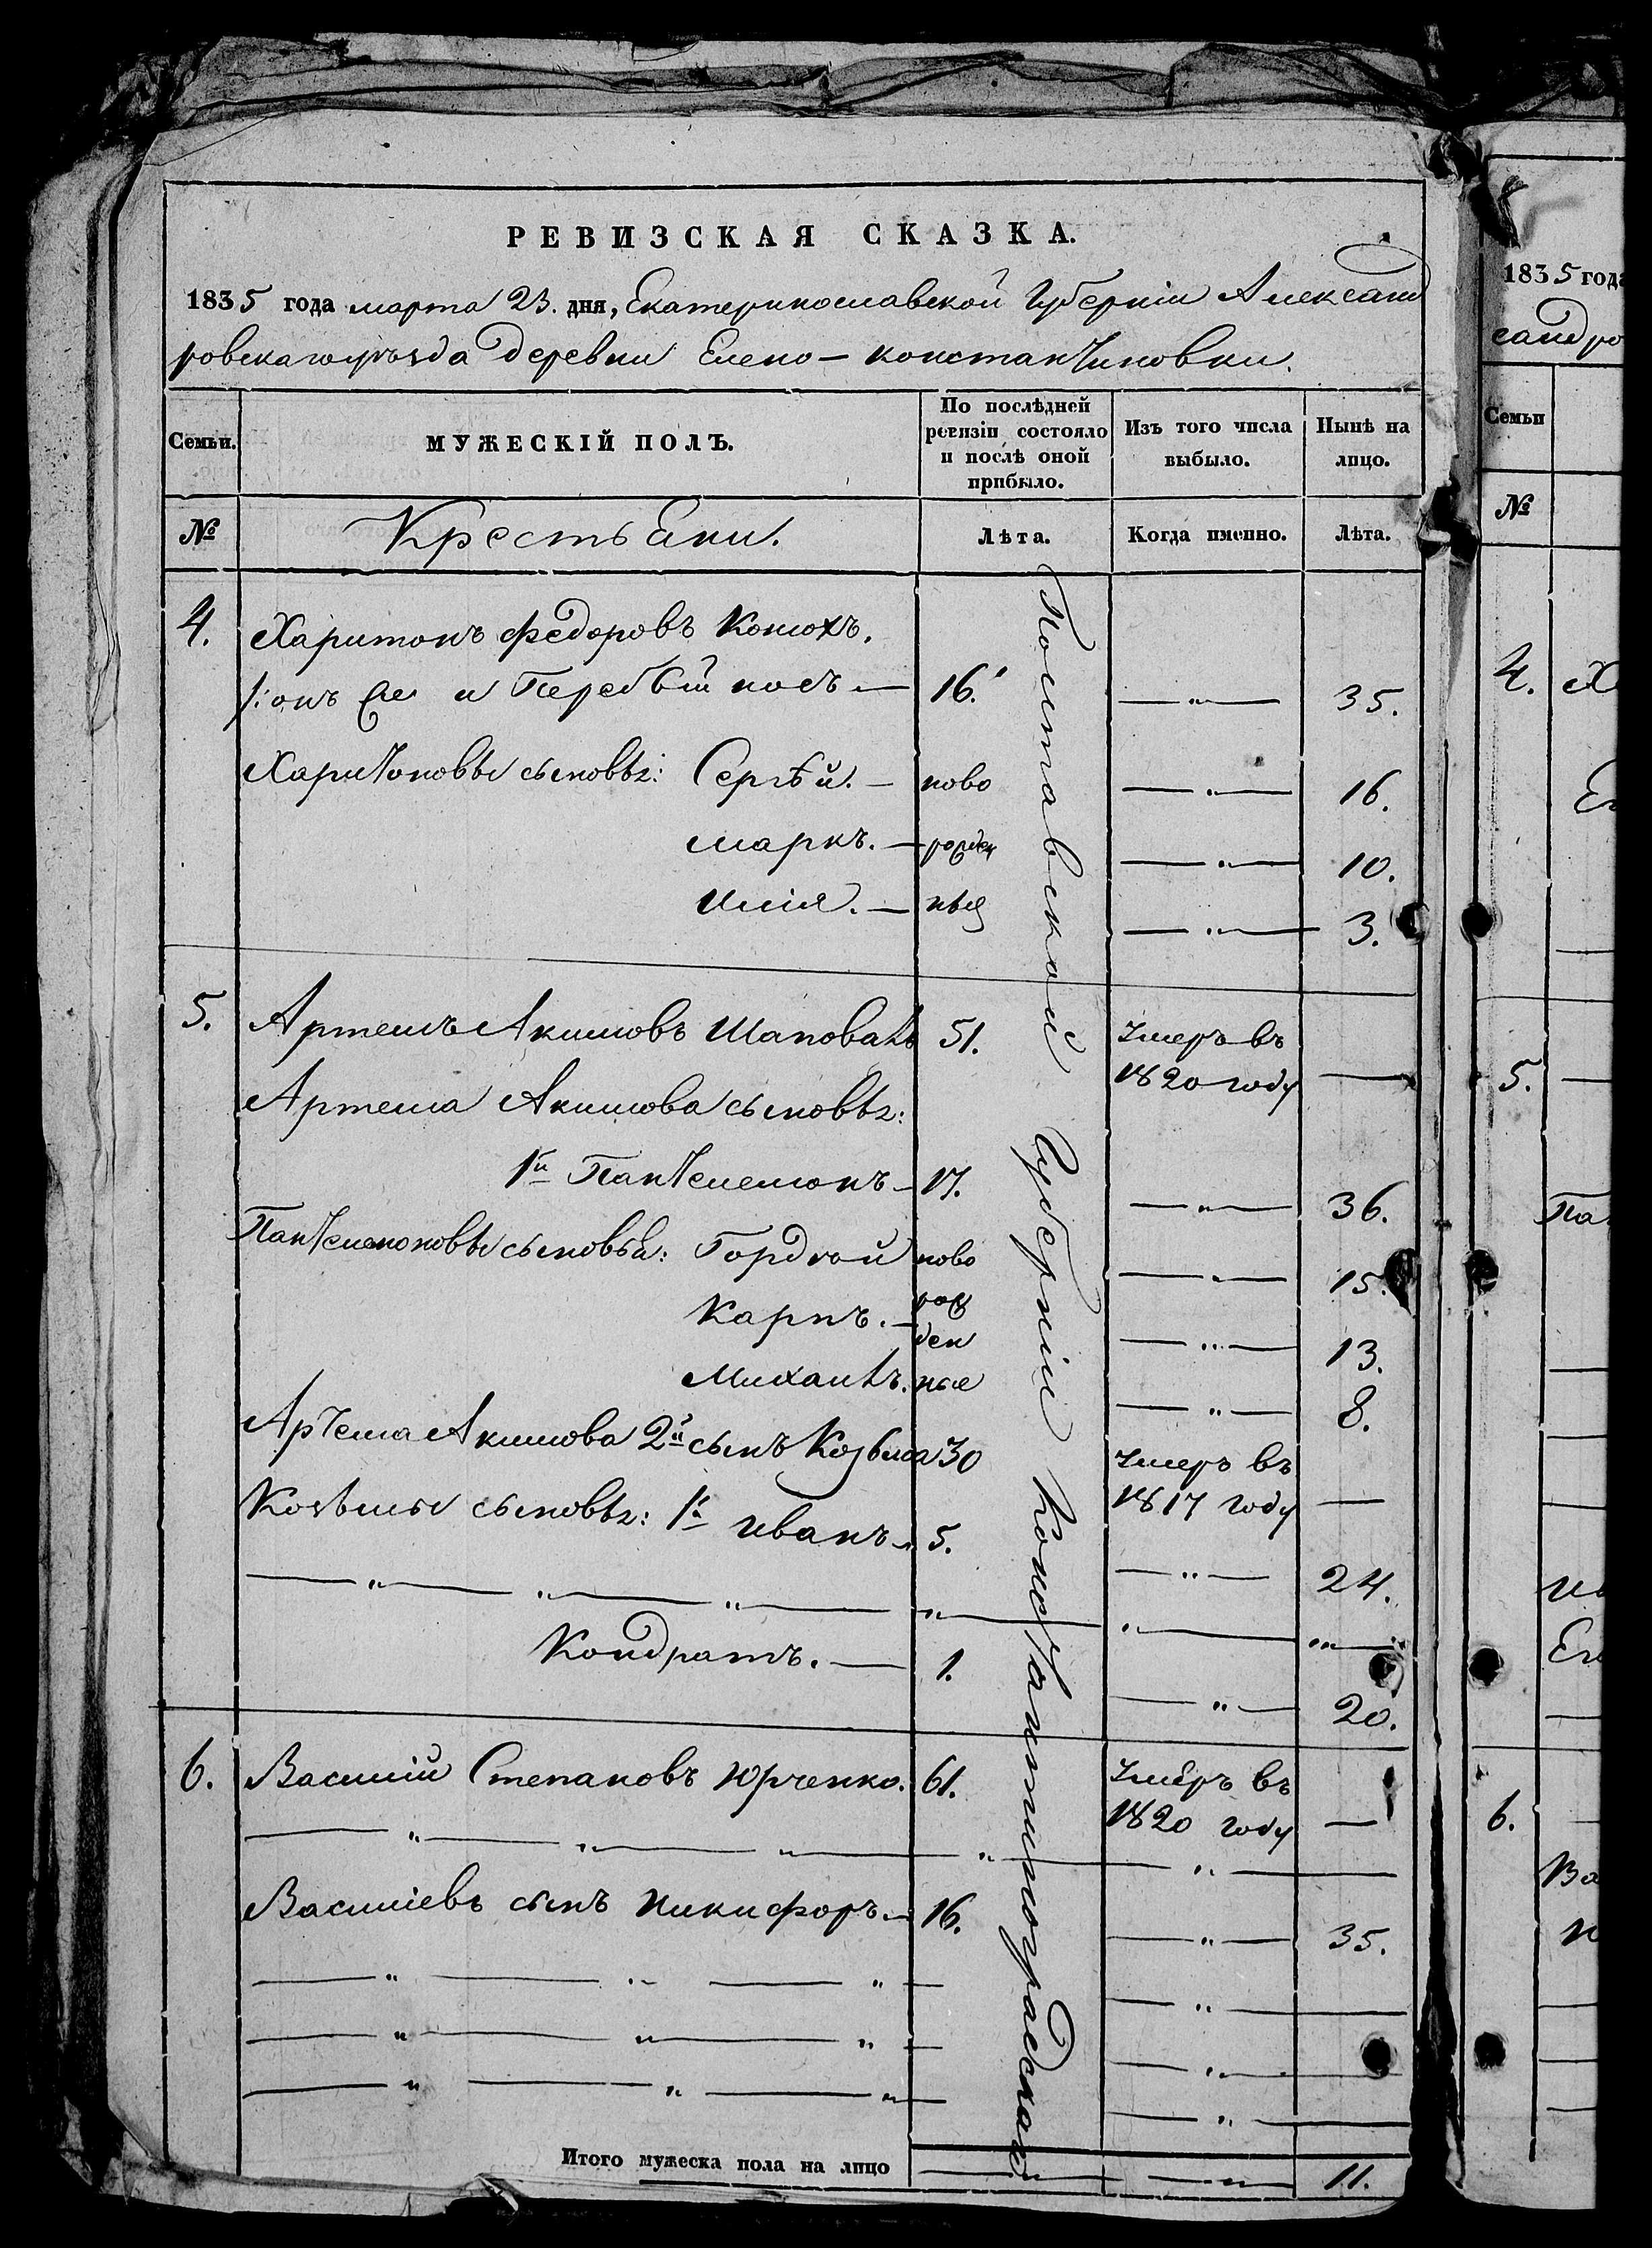 РЕВИЗСКАЯ СКАЗКА.
1835 года марта 23. дня, Екатеринославской Губерніи Александ
ровскаго уѣзда деревни Елено — константиновки.
Семьи.
МУЖЕСКІЙ ПОЛЪ.
По послѣдней ревизіи состояло и послѣ оной прибыло.
Изъ того числа выбыло.
Нынѣ на лицо.
№
Крестьяни.
Лѣта.
Когда именно.
Лѣта.
4. Харитонъ Федоровъ Конюхъ.
/: онъ же и Перебей носъ — 16. — „ — 35.
Харитоновы сыновья: Сергѣй. — ново — „ — 16.
маркъ. — рожден — „ — 10.
Илія. — ныя — „ — 3.
5. Артемъ Акимовъ Шаповалъ 51. Умеръ въ
1820 году —
Артема Акимова сыновья:
1й Пантелемонъ — 17. — „ — 36.
Пантелемоновы сыновья: Гордѣй ново — „ — 15.
Карпъ. — рож
ден — „ — 13.
Михаилъ. ные — „ — 8.
Артема Акимова 2й сынъ Козьма 30 Умеръ въ
1817 году —
Козьмы сыновья: 1й Иванъ — 5. — „ — 24.
— „ — „ — „ — „ — „ — „ —
Кондратъ. — 1. — „ — 20.
6. Василій Степановъ Юрченко. 61. Умеръ въ
1820 году —
— „ — „ — „ — „ — „ —
Василіевъ сынъ Никифоръ — 16. — „ — 35.
— „ — „ — „ — — „ —
— „ — „ — „ — — „ —
— „ — „ — „ — — „ —
Итого мужеска пола на лицо — — „ — 11.
Полтавской Губерніи Константиноградскаго
1835 года
сандро
Семьи
№
4. Х
5. —
Пан
6. —
Ва